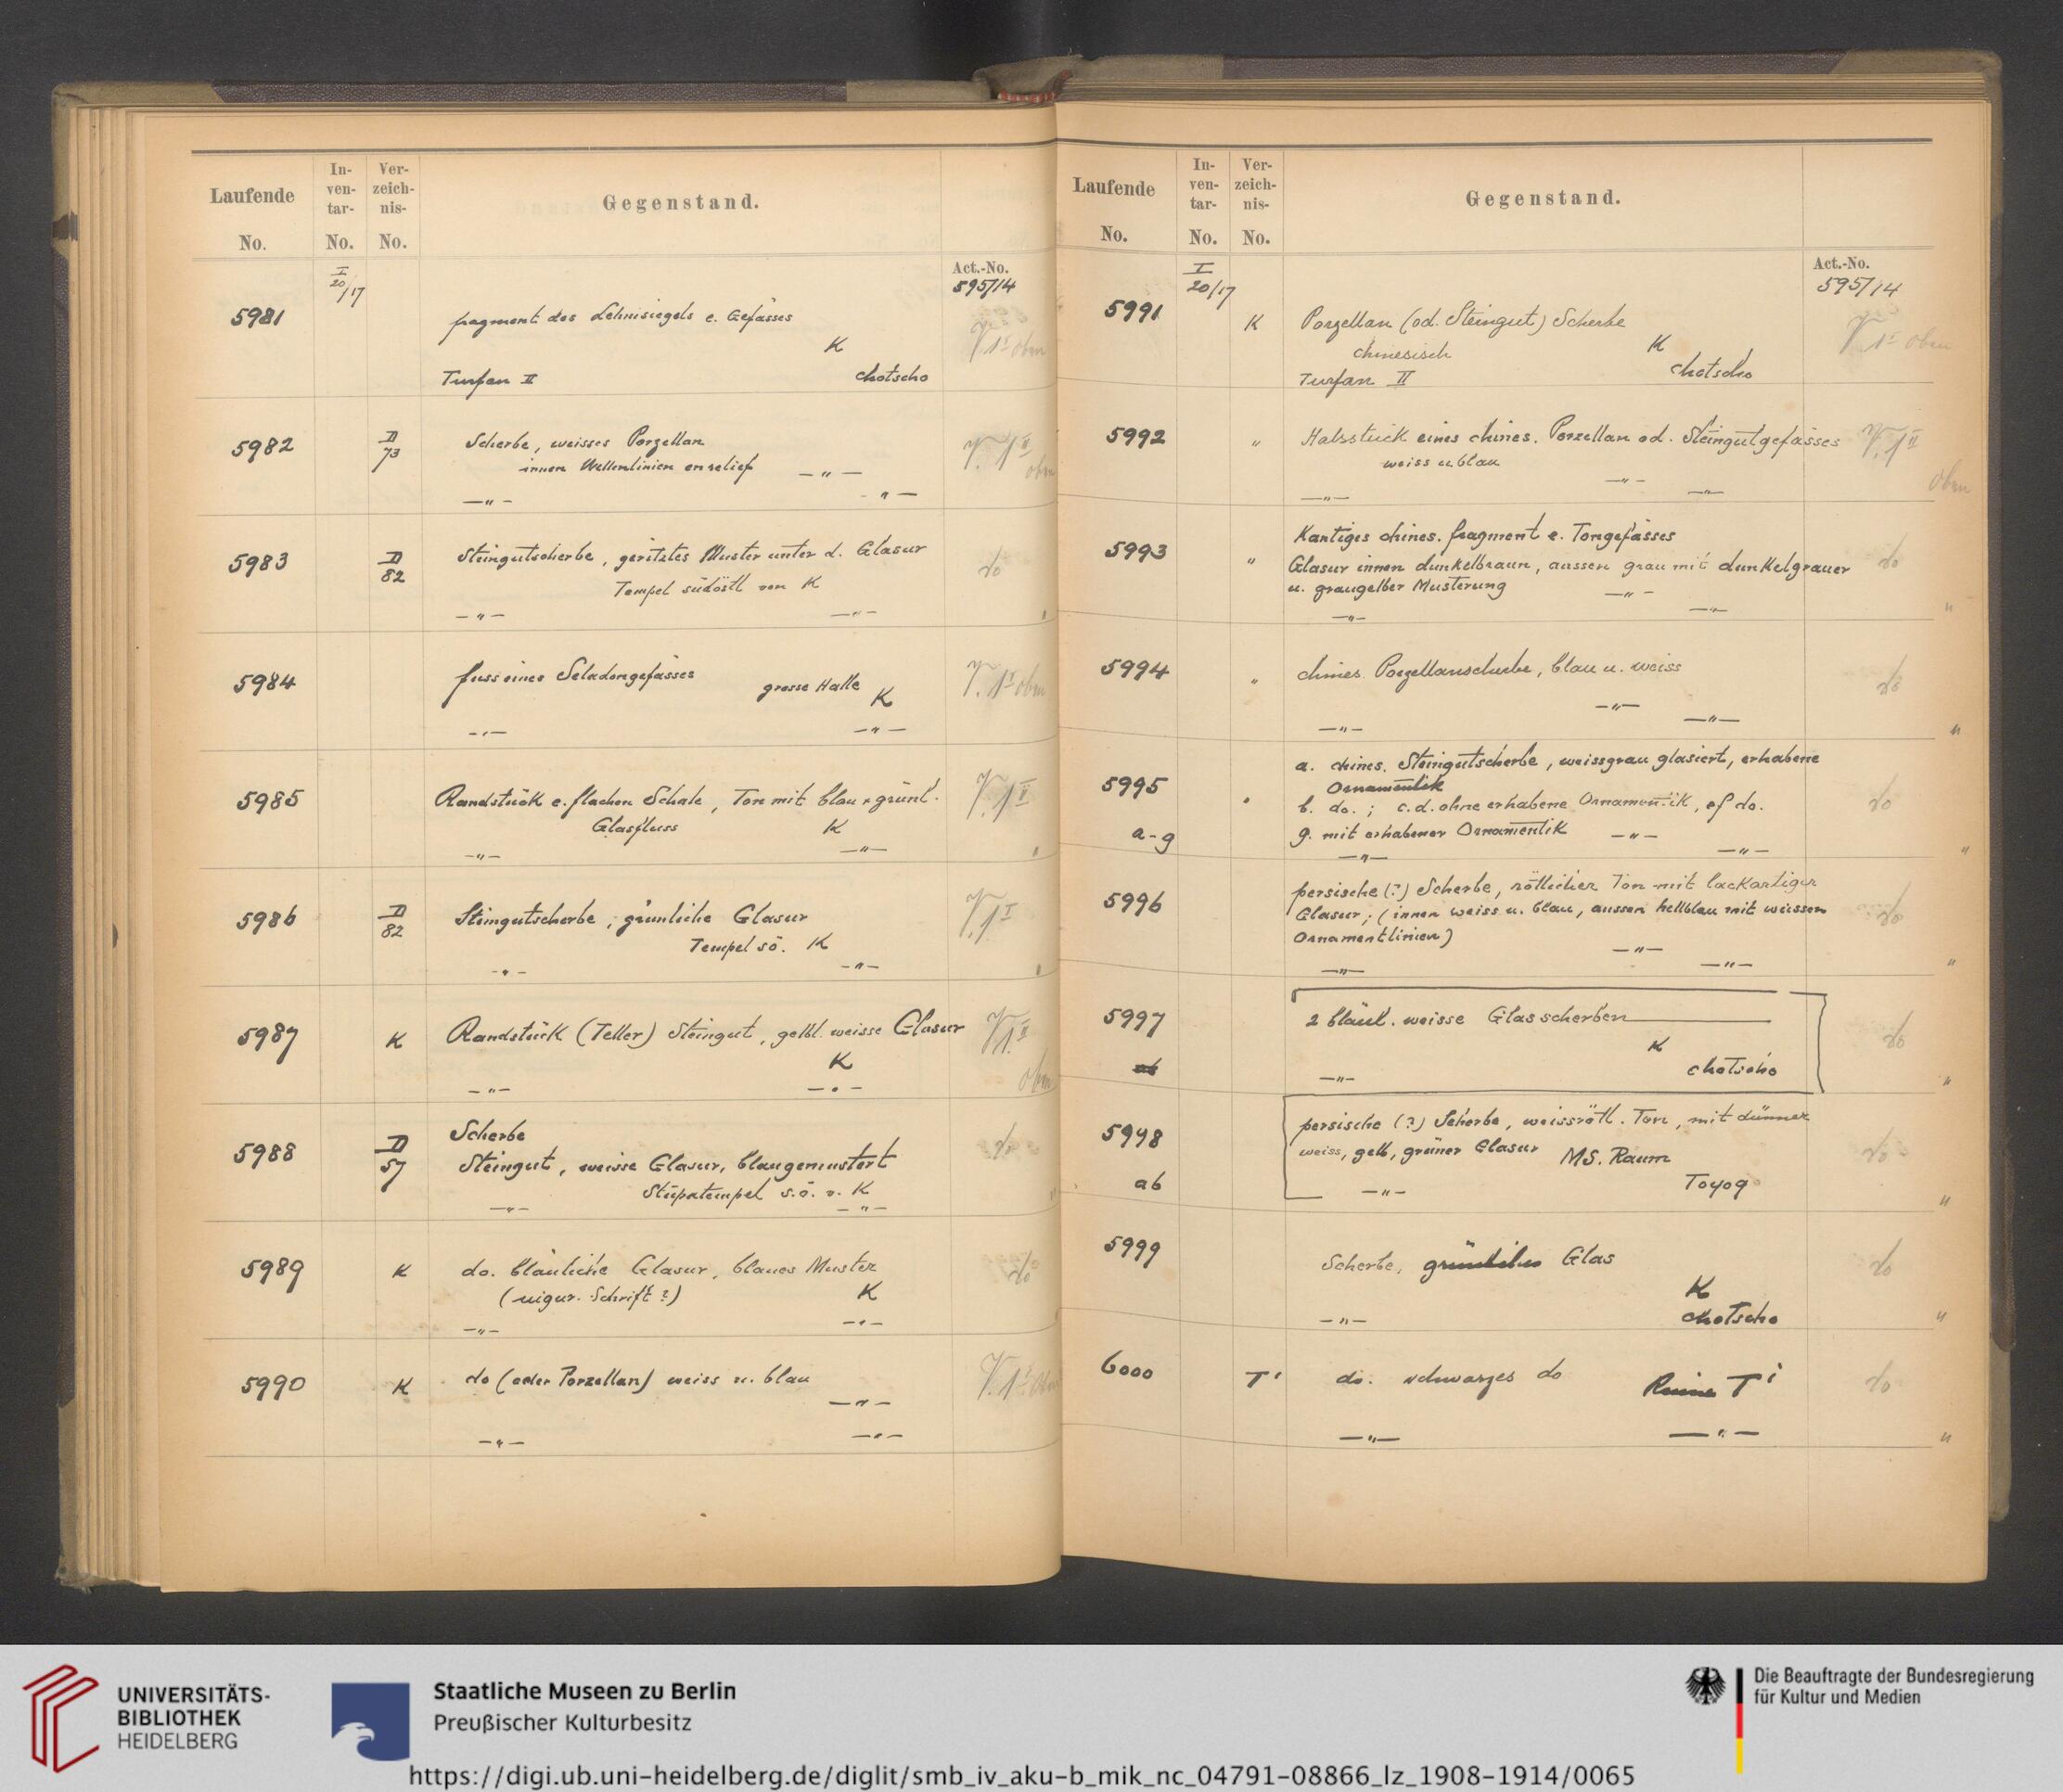 Laufende No.
In-ven-tar-No.
Ver-zeich-nis-No.
Gegenstand.
Act.-No.
595/14
5981
I
20/17
fragment des Lehmsiegels e. Gefässes
K
V. 1I oben
Turfan II
Chotscho
5982
D
73
Scherbe, weisses Porzellan
innen Wellenlinien en relief — " —
V. 1II
oben
— " —
" —
5983
D
82
Steingutscherbe, geritztes Muster unter d. Glasur
do
Tempel südöstl von K
— " —
— " —
"
5984
fuss eines Seladongefässes
grosse Halle
K
V. 1I oben
— " —
— " —
5985
Randstück e. flachen Schale, Ton mit blau + grünl.
V. 1II
Glasfluss
K
— " —
— " —
"
5986
D
82
Steingutscherbe, grünliche Glasur
V. 1I
Tempel sö. K
— " —
— " —
"
5987
K
Randstück (Teller) Steingut, gelbl. weisse Glasur
V. 1II
K
oben
— " —
— " —
5988
D
57
Scherbe
do
Steingut, weisse Glasur, blaugemustert
Stupatempel s.ö. v. K
— " —
— " —
"
5989
K
do. bläuliche Glasur, blaues Muster
do
(uigur. Schrift?)
K
— " —
— " —
5990
K
do (oder Porzellan) weiss u. blau
V. 1I oben
— " —
— " —
— " —
Laufende No.
In-ven-tar-No.
Ver-zeich-nis-No.
Gegenstand.
Act.-No.
595/14
5991
I
20/17
K
Porzellan (od. Steingut) Scherbe
chinesisch
K
V. 1I oben
Turfan II
Chotscho
5992
"
Halsstück eines chines. Porzellan od. Steingutgefässes
V. 1II
weiss u. blau
— " —
oben
— " —
— " —
5993
"
Kantiges chines. fragment e. Tongefässes
Glasur innen dunkelbraun, aussen grau mit dunkelgrauer
do
u. graugelber Musterung
— " —
— " —
— " —
"
5994
"
chines. Porzellanscherbe, blau u. weiss
do
— " —
— " —
— " —
"
5995
a-g
"
a. chines. Steingutscherbe, weissgrau glasiert, erhabene
Ornamentik
b. do. ; c.d. ohne erhabene Ornamentik, ef do.
do
g. mit erhabener Ornamentik — " —
— " —
— " —
"
5996
persische (?) Scherbe, rötlicher Ton mit lackartiger
Glasur; (innen weiss u. blau, aussen hellblau mit weissen
do
Ornamentlinien)
— " —
— " —
— " —
"
5997
ab
2 bläul. weisse Glasscherben
do
K
— " —
Chotscho
"
5998
ab
persische (?) Scherbe, weissrötl. Ton, mit dünner
weiss, gelb, grüner Glasur MS. Raum
do
— " —
Toyoq
"
5999
Scherbe, grünliches Glas
do
K
— " —
Chotscho
"
6000
T'
do. schwarzes do
Ruine T'
do
— " —
— " —
"
UNIVERSITÄTS-
BIBLIOTHEK
HEIDELBERG
Staatliche Museen zu Berlin
Preußischer Kulturbesitz
Die Beauftragte der Bundesregierung
für Kultur und Medien
https://digi.ub.uni-heidelberg.de/diglit/smb_iv_aku-b_mik_nc_04791-08866_lz_1908-1914/0065